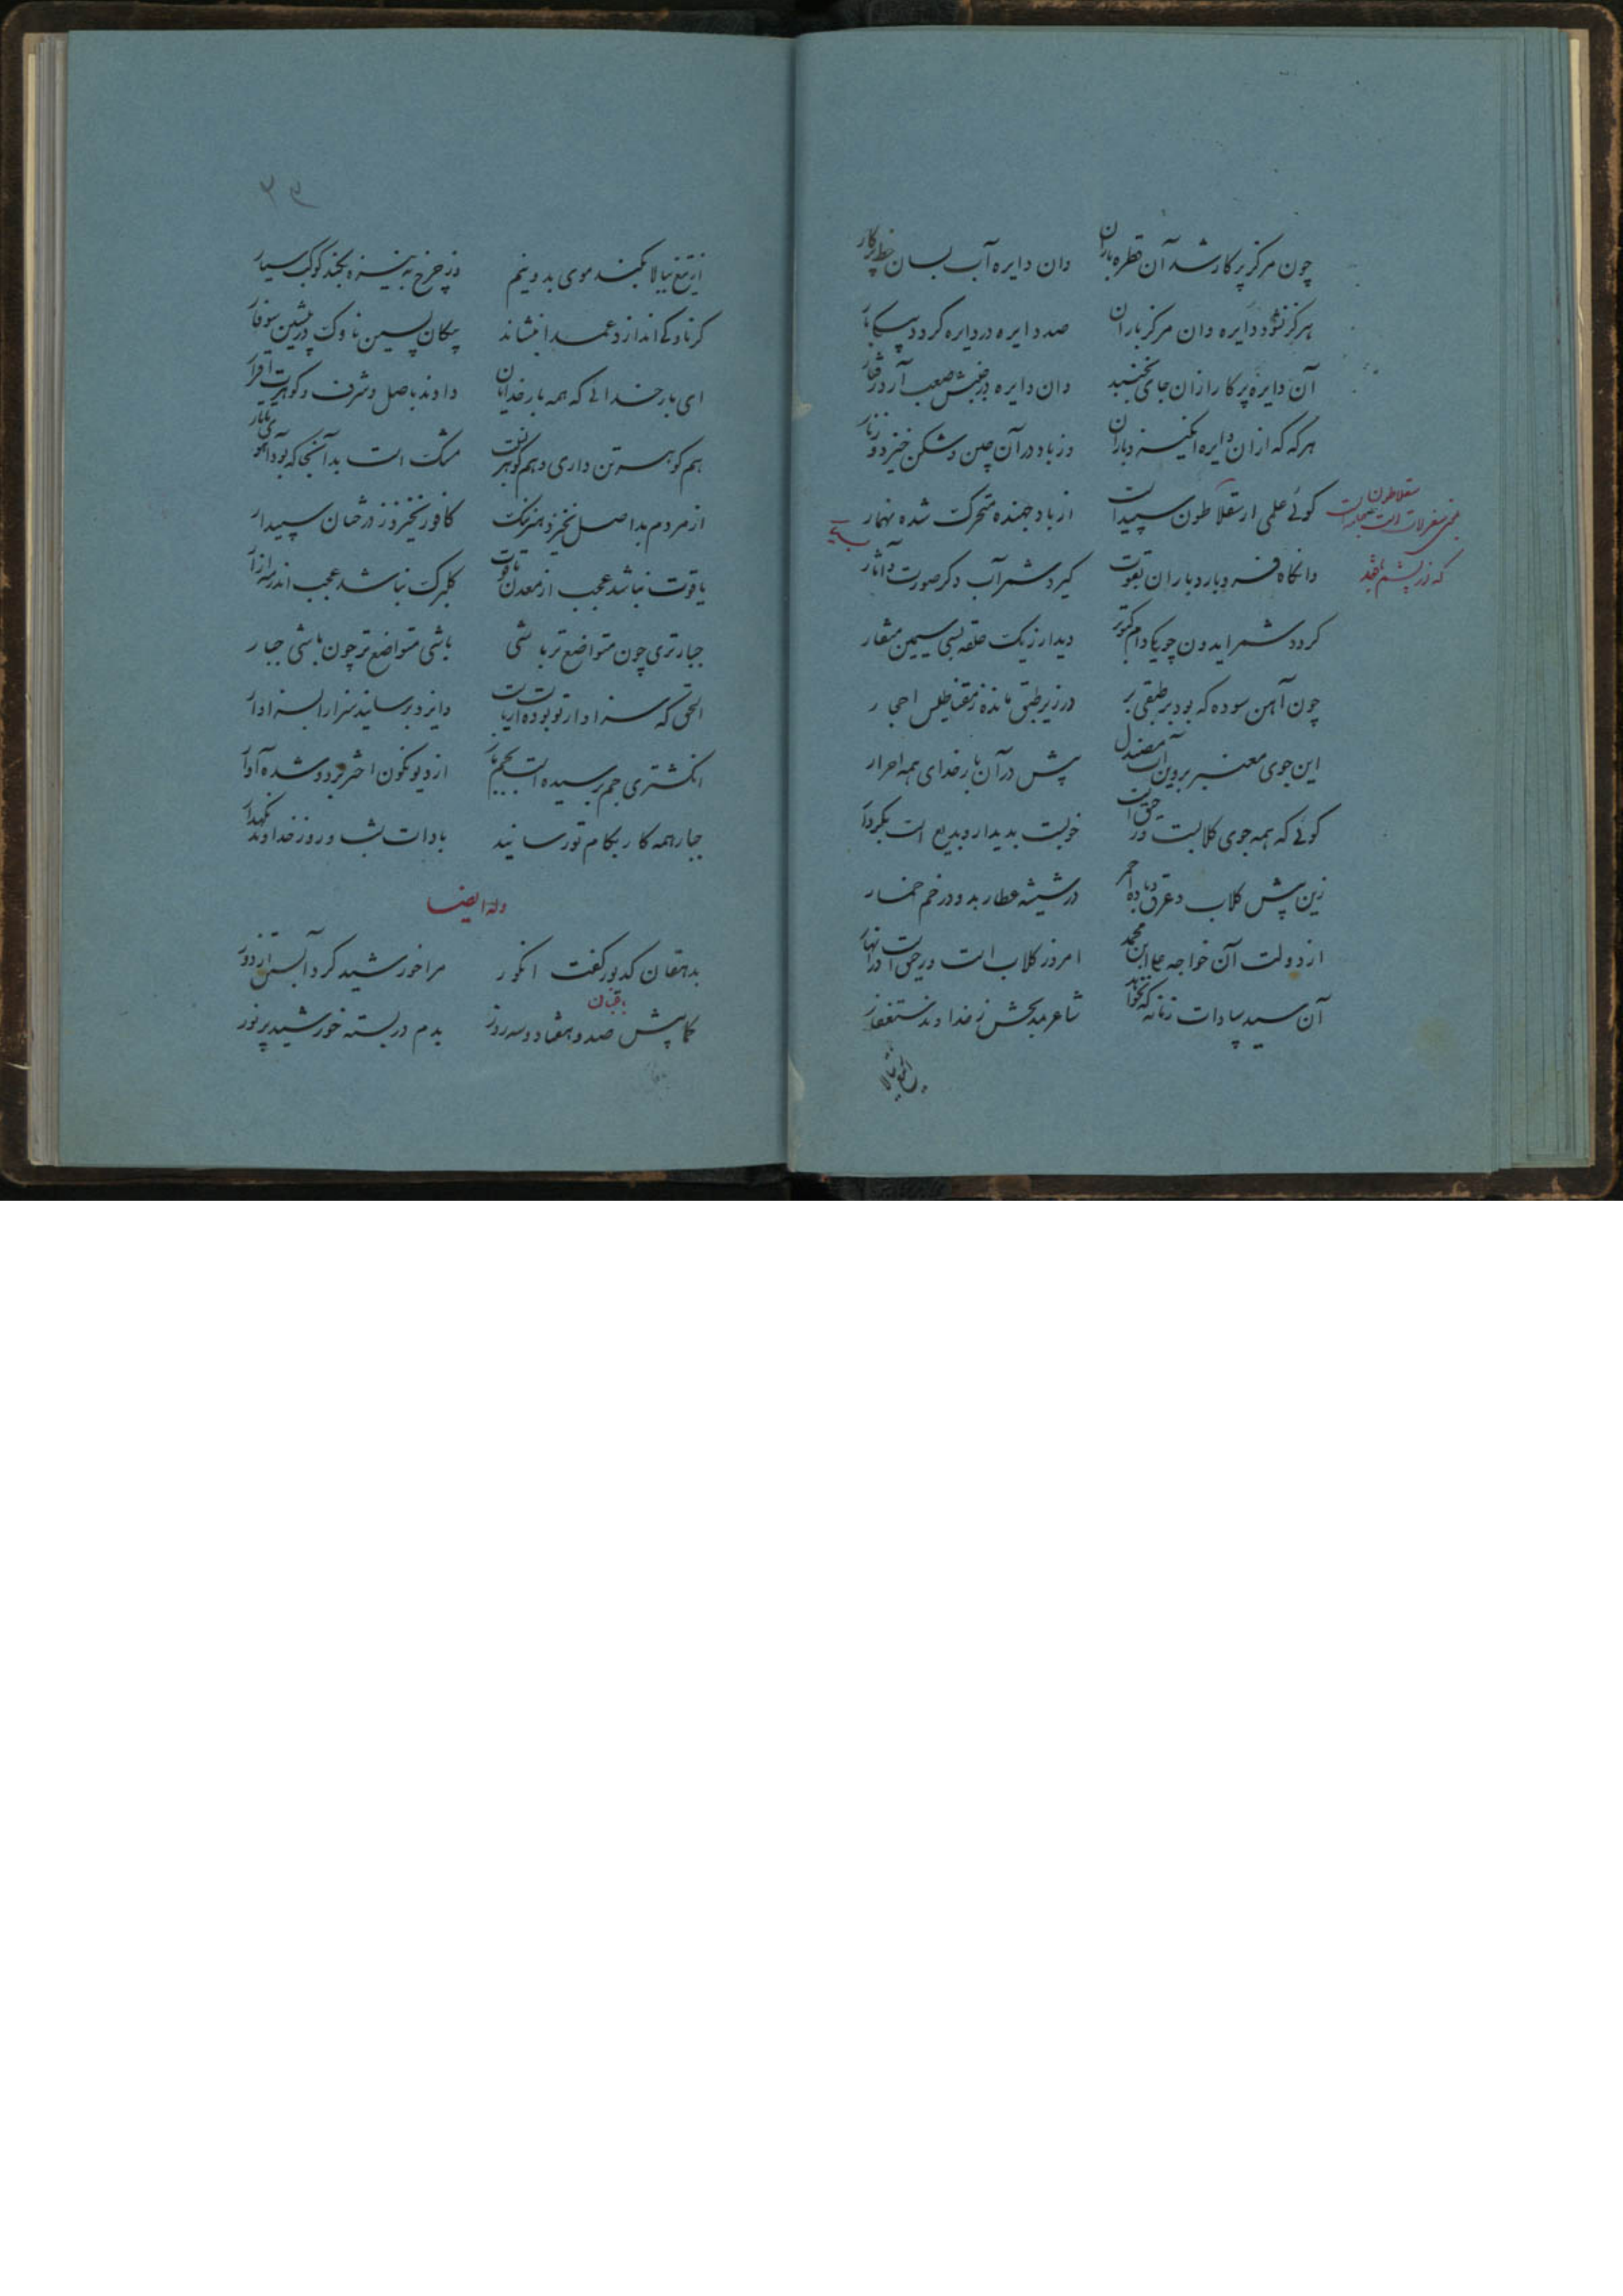 چون مرکز پرکار شد آن قطره باران دان دایره آب بسان خط پرکار
هرگز نشود دایره دان مرکز باران صد دایره در دایره گردد بیکبار
آن دایره پرکار ازان جای نجنبد دان دایره در جنبش صعب آرد رفتار
هر گه که ازان دایره انگیزد باران وز باد در آن چین و شکن خیزد و زنار
گوئی علمی از سقلاطون سپید است از باد جهنده متحرک شده نهمار
سقلاطون
وانگاه فرو بارد باران بقوت گیرد شمر آب دگر صورت و آثار
گردد شمر ایدون چو یکی دام کبوتر دیدار ز یک حلقه بسی سیمین منقار
چون آهن سوده که بود بر طبقی بر در زیر طبق مانده ز مقناطیس احجار
این جوی معنبر بر و این آب مصندل پیش در آن بار خدای همه احرار
گوئی که همه جوی گلابست و رحیق است خوبست بدیدار و بدیع است بکردار
زین پیش گلاب و عرق و باده احمر در شیشه عطار بد و در خم خمار
از دولت آن خواجه علی ابن محمد امروز گلاب است و رحیق است در انهار
آن سید سادات زمانه که نخواهد شاعر بمدیحش ز خداوند ستغفار
از تیغ ببالا
۳۹
از تیغ ببالا بکند موی بدو نیم وز چرخ به نیزه بکند کوکب سیار
گر ناوکی اندازد عمدا بنشاند پیکان پسین ناوک در پیشین سوفار
ای بار خدائی که همه بار خدایان دادند باصل و شرف و گوهرت اقرار
هم گوهر تن داری و هم گوهر نسبت مشک است بدانجا که بود آهوی تاتار
از مردم بد اصل نخیزد هنر نیک کافور نخیزد ز درختان سپیدار
یاقوت نباشد عجب از معدن یاقوت گلبرگ نباشد عجب اندر مه آزار
جبارتری چون متواضع تر باشی باشی متواضع تر چون باشی جبار
الحق که سزاوار تو بوده است ریاست وایزد برسانید سزا را بسزاوار
انگشتری جم برسیده است بجم باز از دیو نگون اختر برده شده آوار
جبار همه کار بکام تو رسانید بادات شب و روز خداوند نگهدار
وله ایضا
بدهقان کدیور گفت انگور مرا خورشید کرد آبستن از دور
باقبان
کمابیش صد و هفتاد و سه روز بدم در بستر خورشید پر نور